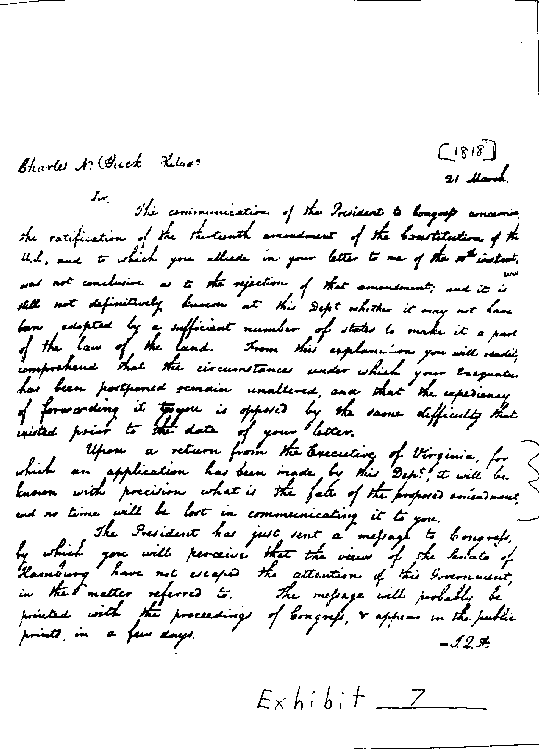 [1818]
Charles N. Buck
21 March.
Sir,
The communication of the President to Congress concerning
the ratification of the thirteenth amendment of the Constitution of the
U.S., and to which you allude in your letter to me of the instant,
was not conclusive as to the rejection of that amendment; and it is
still not definitively known at this Dept whether it may not have
been adopted by a sufficient number of states to make it a part
of the law of the land. From this explanation you will readily
comprehend that the circumstances under which your Exequatur
has been postponed remain unaltered, and that the expediency
of forwarding it to you is opposed by the same difficulty that
existed prior to the date of your letter.
Upon a return from the Executive of Virginia, for
which an application has been made by this Dept, it will be
known with precision what is the fate of the proposed amendment,
and no time will be lost in communicating it to you.
The President has just sent a message to Congress,
by which you will perceive that the views of the Senate of
Hamburg have not escaped the attention of this Government,
in the matter referred to. The message will probably be
printed with the proceedings of Congress, & appear in the public
prints, in a few days.
-J.Q.A.
Exhibit 7